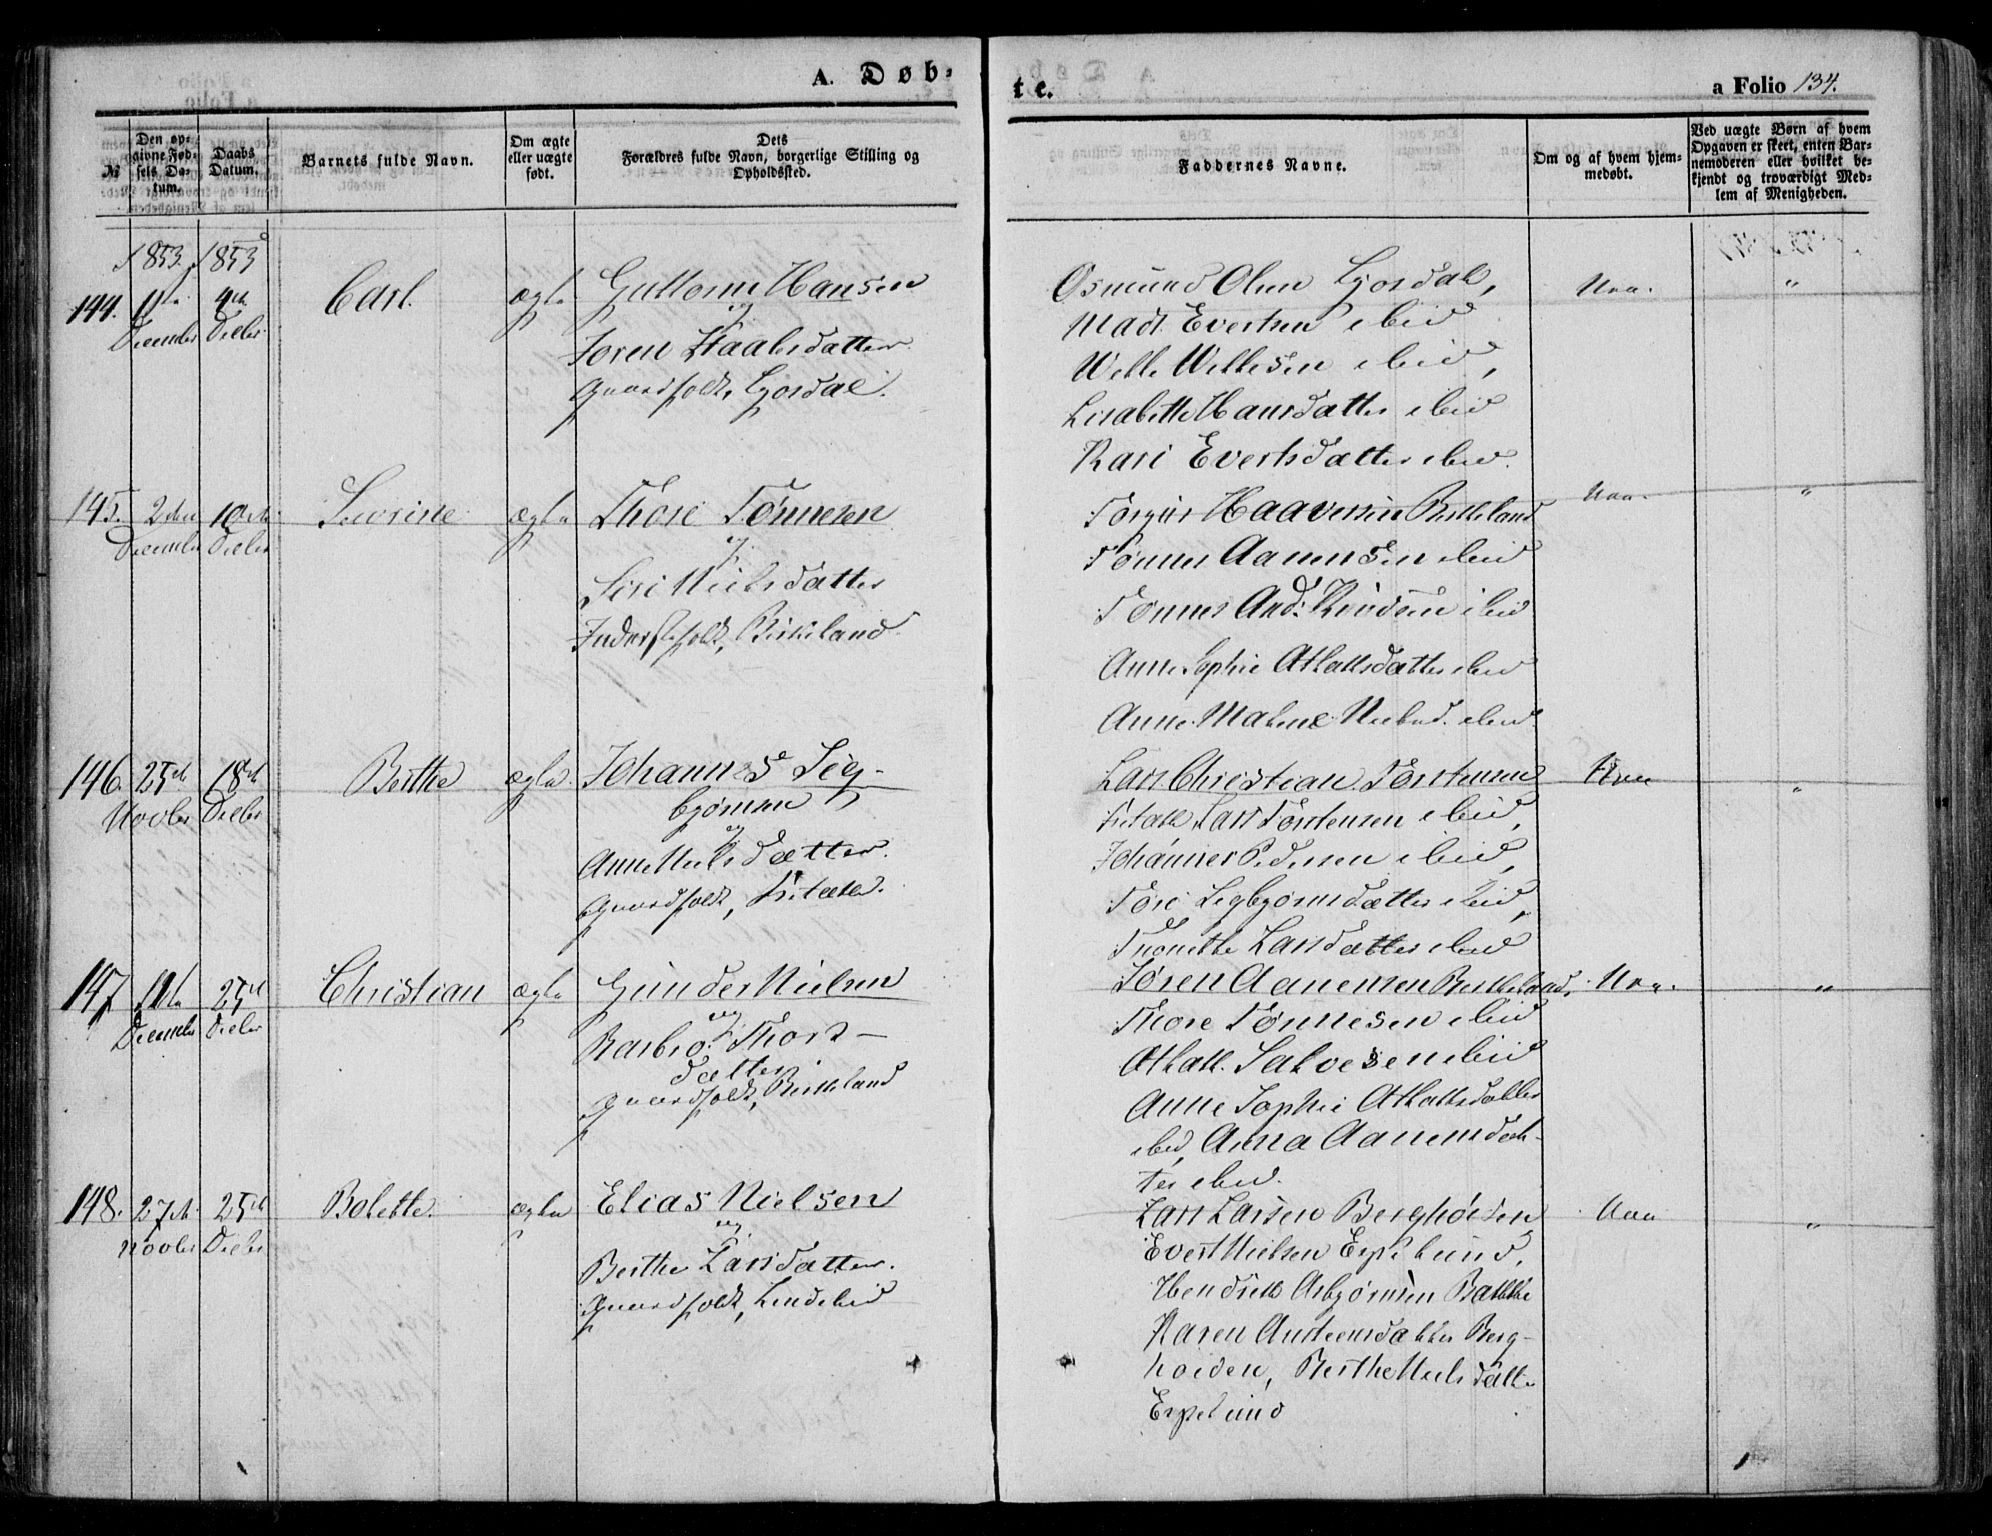 A. Døb-
te.
a Folio 134.
№
Den op-
givne Fød-
sels Da-
tum.
Daabs
Datum.
Barnets fulde Navn.
Om ægte
eller uægte
født.
Dets
Forældres fulde Navn, borgerlige Stilling og
Opholdssted.
Faddernes Navne.
Om og af hvem hjem-
medøbt.
Ved uægte Børn af hvem
Opgaven er skeet, enten Bar-
nemoderen eller hvilket be-
kjendt og troværdigt Med-
lem af Menigheden.
1853. 1853
144.
December
4de
Decbr
Carl.
ægte
Guttorm Hansen
og
Gaardfolk, Gjosdal.
Osmund Olsen Gjosdal,
Mads Evertsen ibid
ibid,
Lisabette Hansdatter ibid
Kari Evertsdatter ibid.
"
145.
2den
December
10de
Decbr
Sevrine
ægte
Thore Tønnesen
og
Siri Nielsdatter
Inderstfolk, Birkeland.
Haaversen Birkeland
Tønnes Aanensen ibid
Tønnes And. ibid
Anne Sophie Atlaksdatter ibid
Anne Malene Nielsd. ibid
"
146.
25de
Novbr
18de
Decbr
Berthe
ægte
Johannes Sig-
bjørnsen
og
Anne Nielsdatter.
Gaardfolk,
Lars Christian Torstensen
Lars Torstensen ibid,
Johannes Pedersen ibid,
Tore Sigbjørnsdatter ibid,
Larsdatter ibid
"
147
December
25de
Decbr
Christian
ægte
Gunder Nielsen
og
Barbro Thors-
datter
Gaardfolk, Birkeland
Søren Aanensen Birkeland,
Thore Tønnesen ibid
Atlak Salvesen ibid
Anne Sophie Atlaksdatter
ibid, Anna Aanensdat-
ter ibid.
"
148.
27de
Novbr
25de
Decbr
Bolette.
ægte
Elias Nielsen
og
Berthe Larsdatter.
Gaardfolk, Lindelid
Lars Larsen Berghøiden
Evert Nielsen Espelund,
Hendrik Asbjørnsen Bakke
Karen Austeensdatter Berg-
høiden, Berthe Nielsdatter
Espelund
"